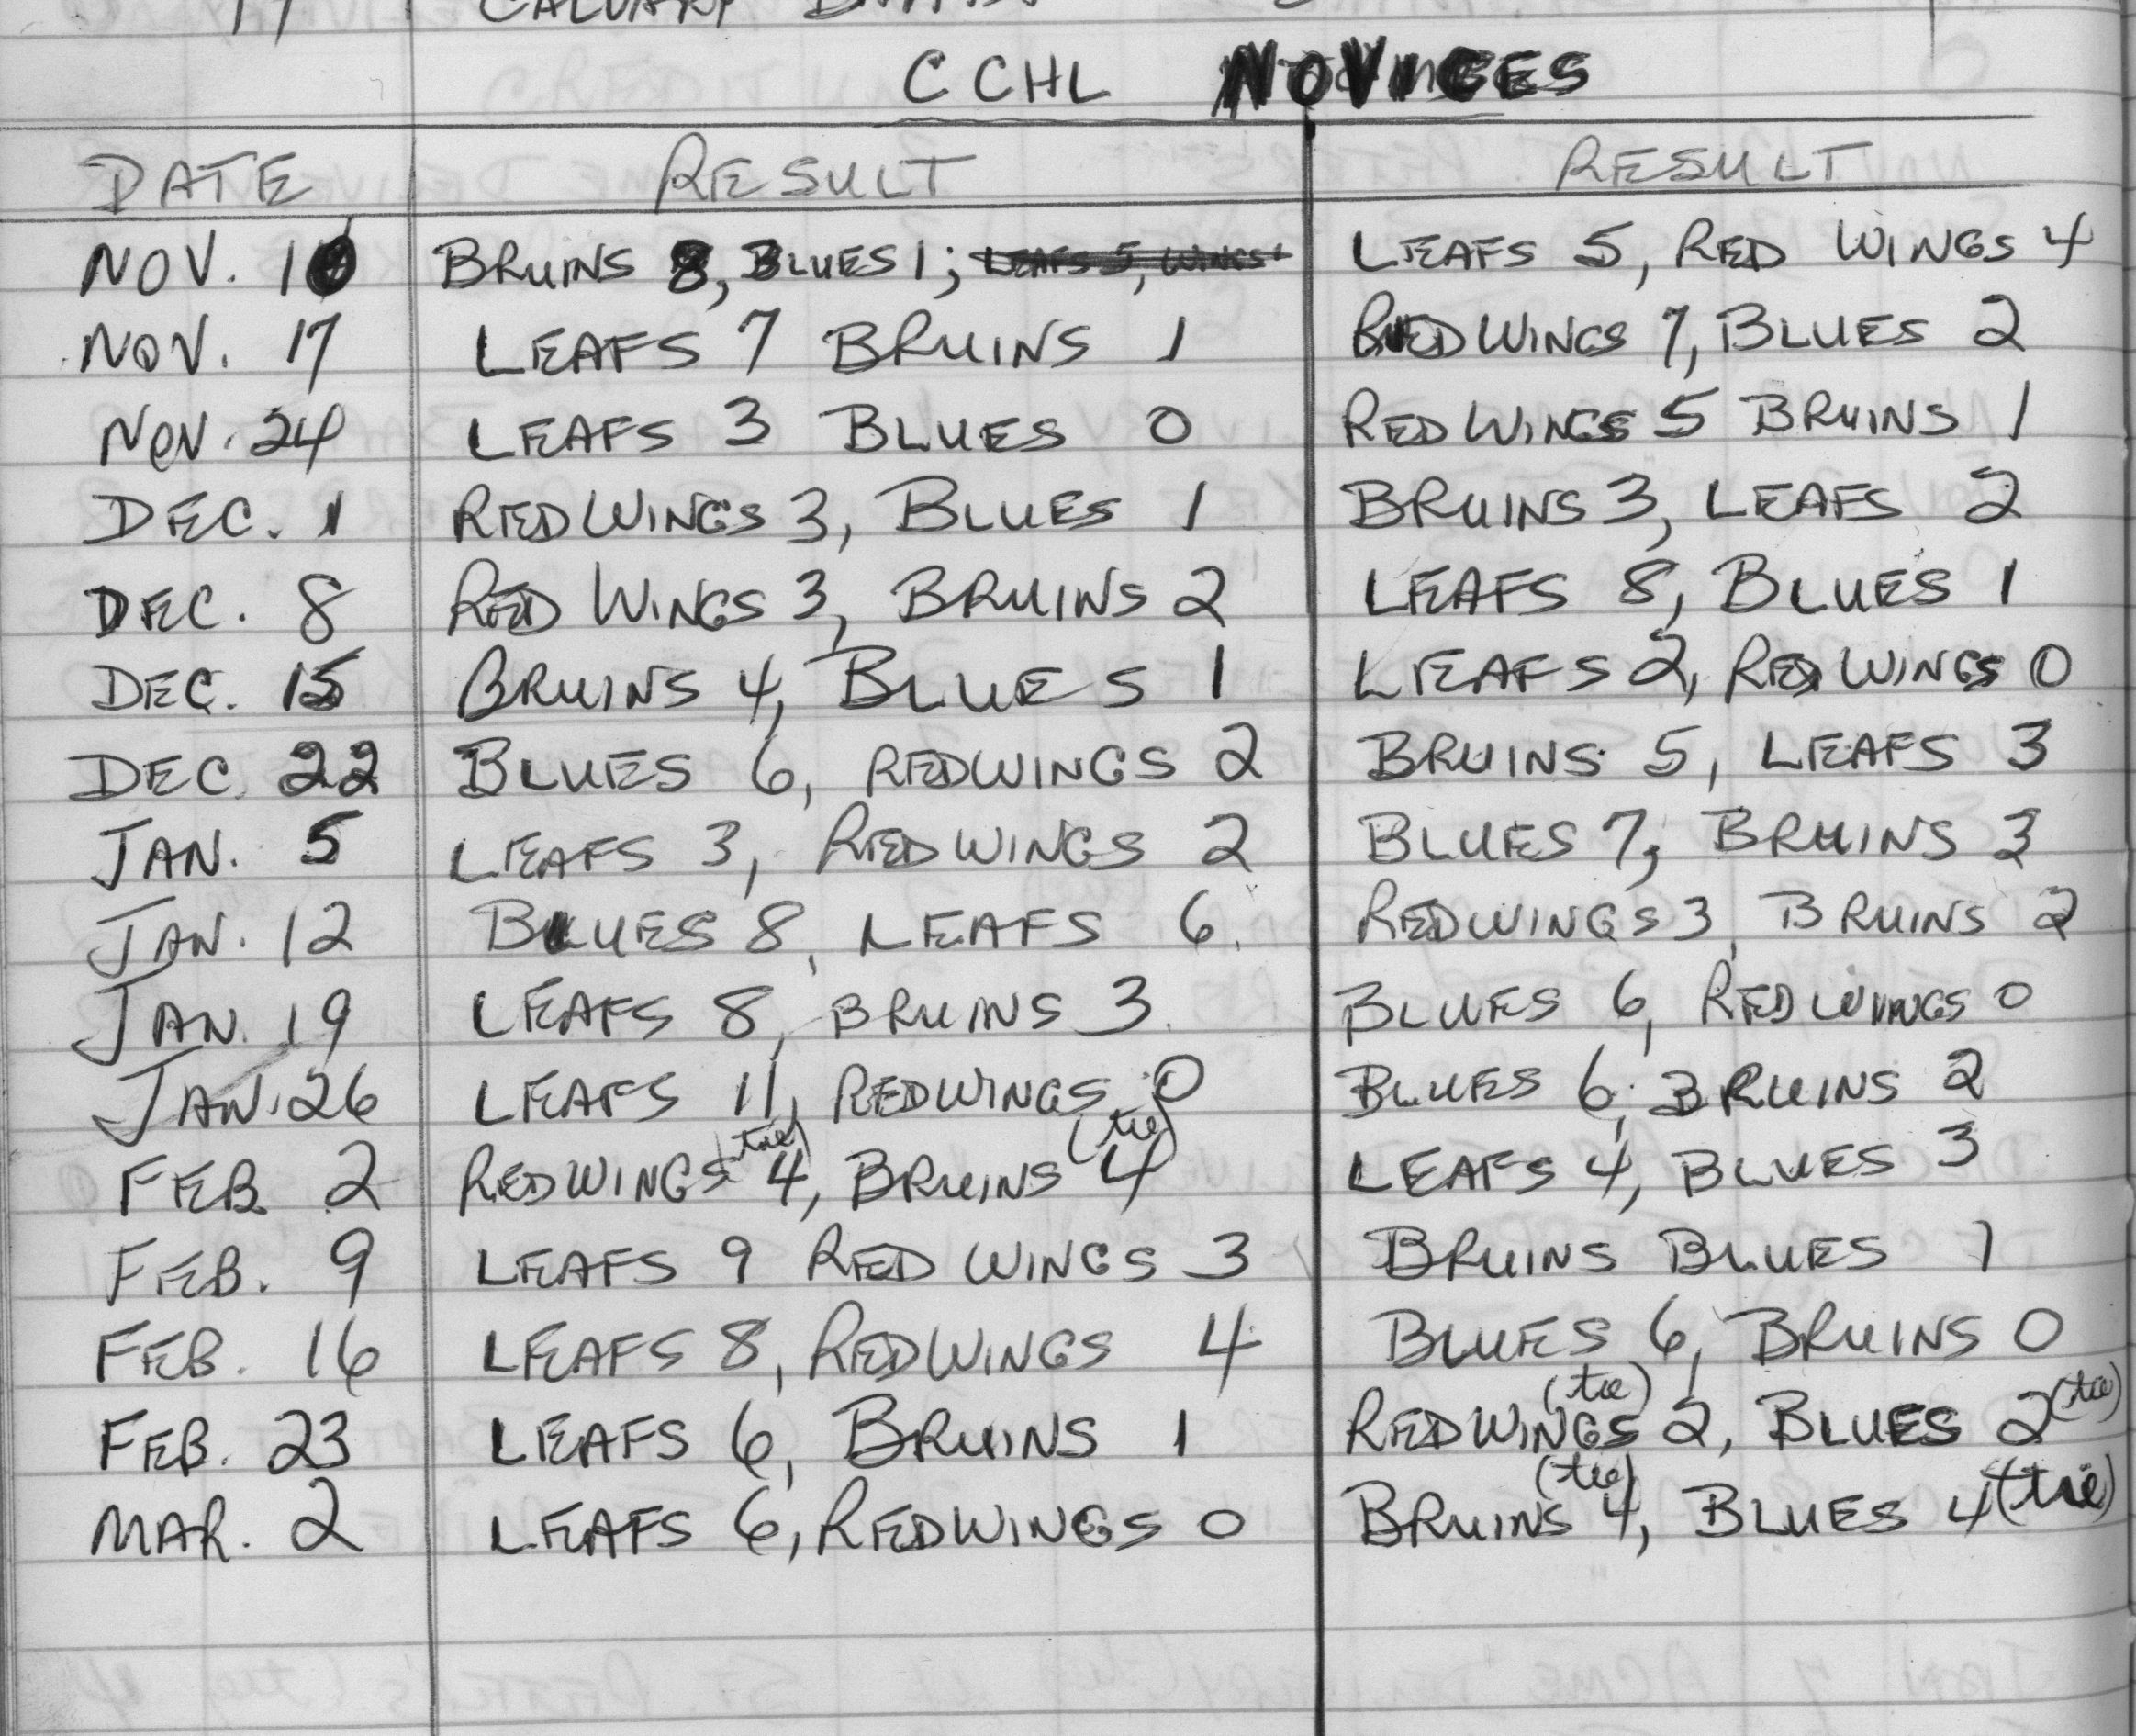 CALVARY
CCHL NOVICES
DATE RESULT RESULT
NOV. 10 BRUINS 8, BLUES 1; LEAFS 5, WINGS LEAFS 5, RED WINGS 4
NOV. 17 LEAFS 7 BRUINS 1 RED WINGS 7, BLUES 2
NOV. 24 LEAFS 3 BLUES 0 RED WINGS 5 BRUINS 1
DEC. 1 RED WINGS 3, BLUES 1 BRUINS 3, LEAFS 2
DEC. 8 RED WINGS 3, BRUINS 2 LEAFS 8, BLUES 1
DEC. 15 BRUINS 4, BLUES 1 LEAFS 2, RED WINGS 0
DEC. 22 BLUES 6, REDWINGS 2 BRUINS 5, LEAFS 3
JAN. 5 LEAFS 3, REDWINGS 2 BLUES 7, BRUINS 3
JAN. 12 BLUES 8, LEAFS 6. REDWINGS 3, BRUINS 2
JAN. 19 LEAFS 8, BRUINS 3. BLUES 6, RED WINGS 0
JAN. 26 LEAFS 11, REDWINGS 0 BLUES 6, BRUINS 2
FEB. 2 REDWINGS (tie) 4, BRUINS (tie) 4 LEAFS 4, BLUES 3
FEB. 9 LEAFS 9 RED WINGS 3 BRUINS BLUES 1
FEB. 16 LEAFS 8, REDWINGS 4 BLUES 6, BRUINS 0
FEB. 23 LEAFS 6, BRUINS 1 REDWINGS (tie) 2, BLUES 2 (tie)
MAR. 2 LEAFS 6, REDWINGS 0 BRUINS (tie) 4, BLUES 4 (tie)